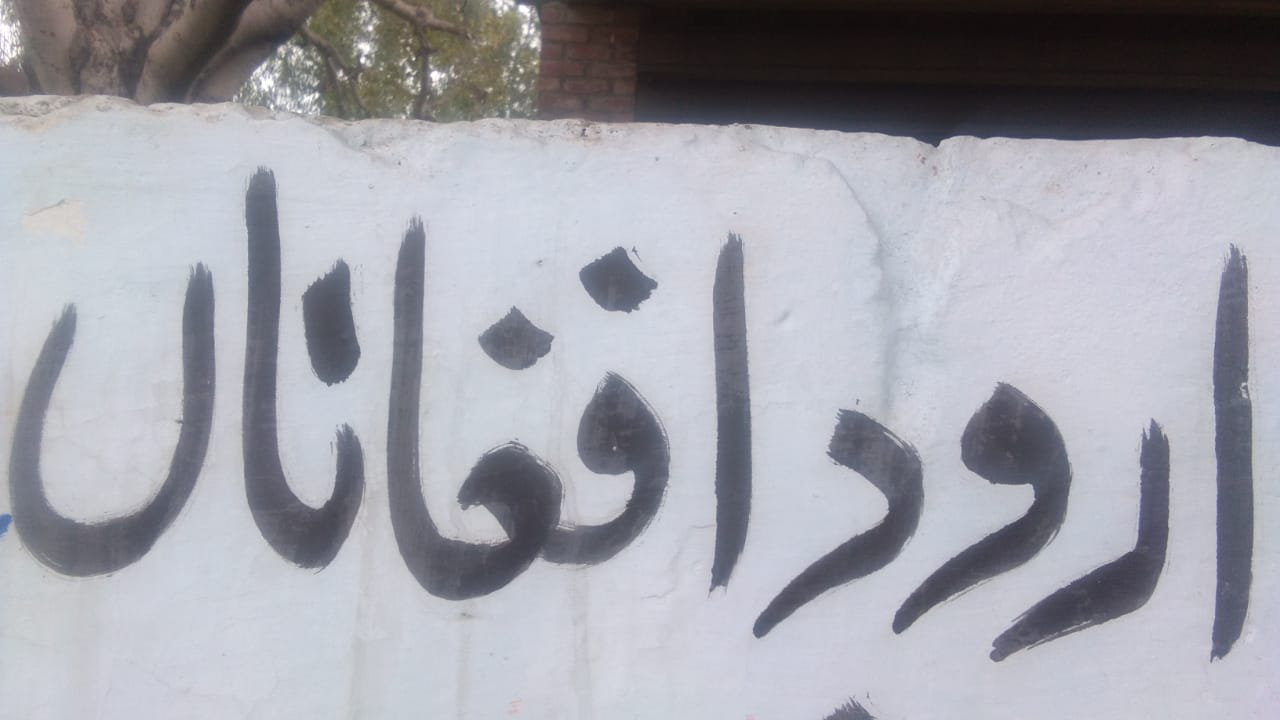 ارود افغاناں